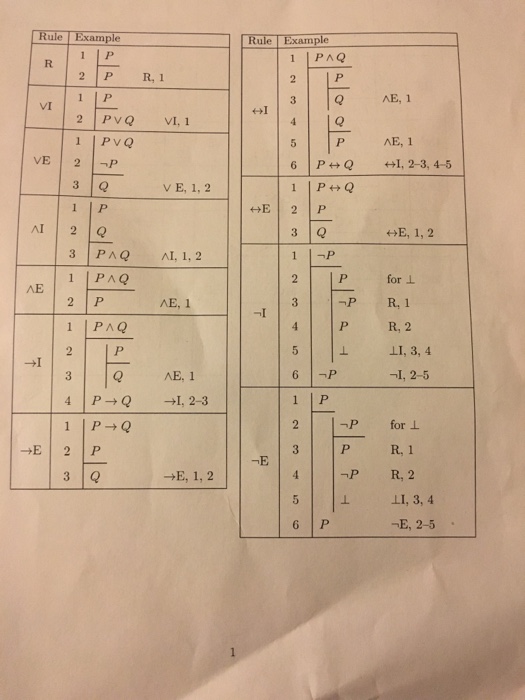 Rule Example
R
1 P
2 P R, 1
∨I
1 P
2 P ∨ Q ∨I, 1
∨E
1 P ∨ Q
2 ¬P
3 Q ∨ E, 1, 2
∧I
1 P
2 Q
3 P ∧ Q ∧I, 1, 2
∧E
1 P ∧ Q
2 P ∧E, 1
→I
1 P ∧ Q
2 P
3 Q ∧E, 1
4 P → Q →I, 2–3
→E
1 P → Q
2 P
3 Q →E, 1, 2
Rule Example
↔I
1 P ∧ Q
2 P
3 Q ∧E, 1
4 Q
5 P ∧E, 1
6 P ↔ Q ↔I, 2–3, 4–5
↔E
1 P ↔ Q
2 P
3 Q ↔E, 1, 2
¬I
1 ¬P
2 P for ⊥
3 ¬P R, 1
4 P R, 2
5 ⊥ ⊥I, 3, 4
6 ¬P ¬I, 2–5
¬E
1 P
2 ¬P for ⊥
3 P R, 1
4 ¬P R, 2
5 ⊥ ⊥I, 3, 4
6 P ¬E, 2–5
1